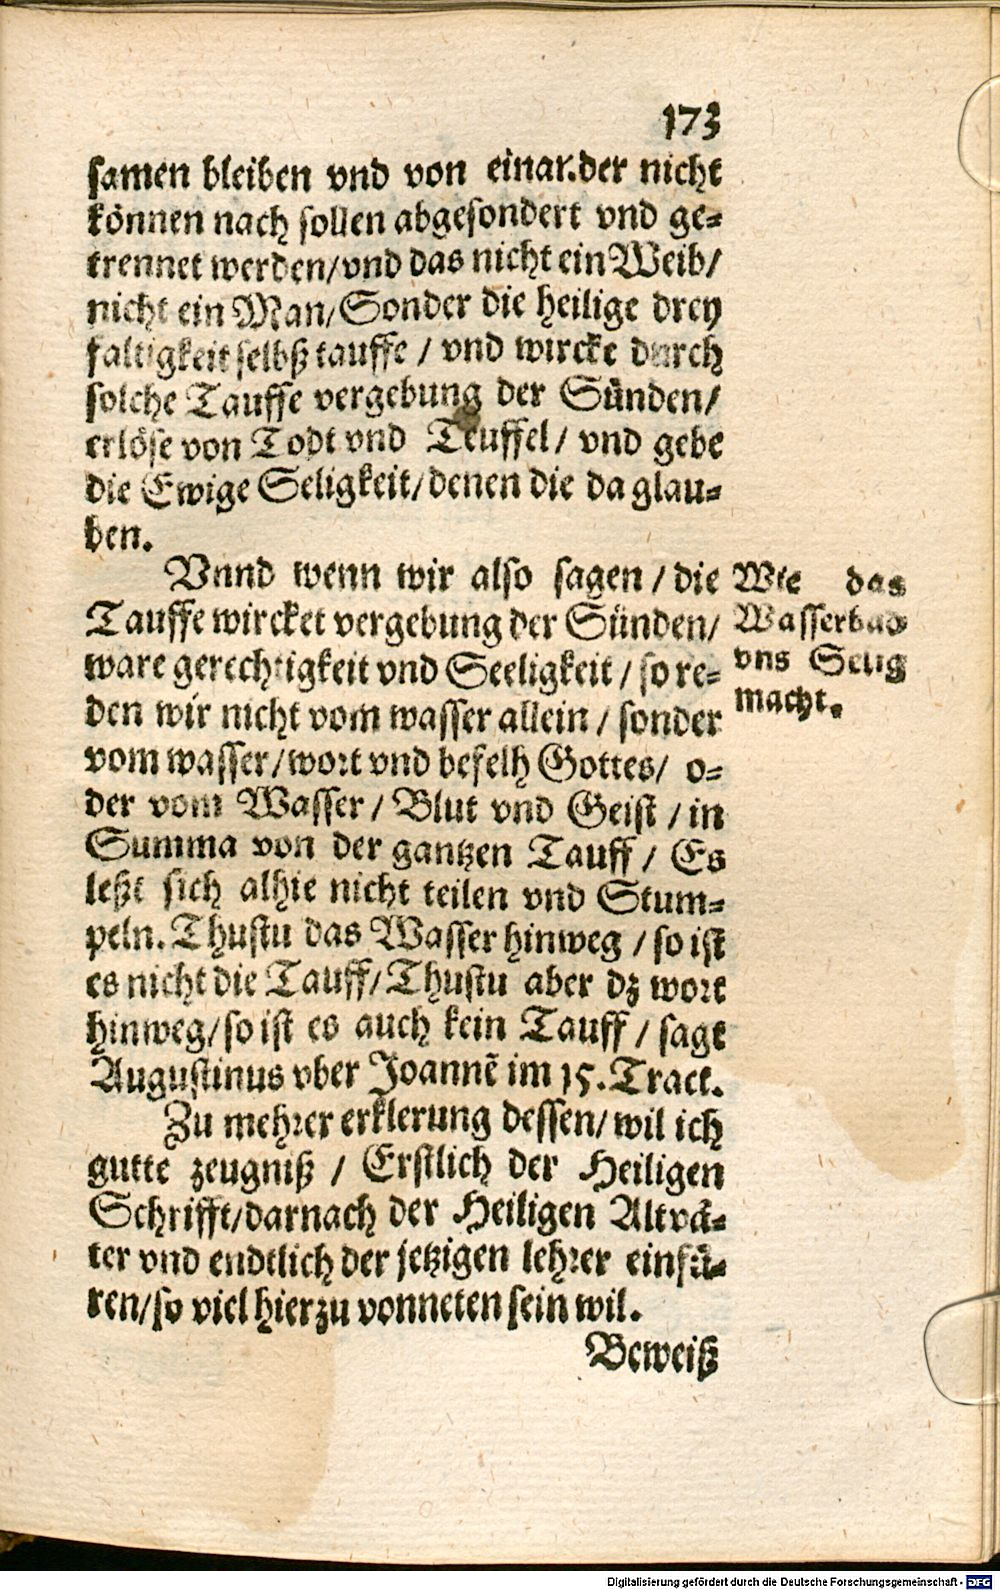 173
samen bleiben vnd von einander nicht
können nach sollen abgesondert vnd ge-
trennet werden/vnd das nicht ein Weib/
nicht ein Man/Sonder die heilige drey
faltigkeit selbß tauffe / vnd wircke durch
solche Tauffe vergebung der Sünden/
erlöse von Todt vnd Teuffel/ vnd gebe
die Ewige Seligkeit/denen die da glau-
ben.
Vnnd wenn wir also sagen / die
Tauffe wircket vergebung der Sünden/
ware gerechtigkeit vnd Seeligkeit / so re-
den wir nicht vom wasser allein / sonder
vom wasser/wort vnd befelh Gottes/ o-
der vom Wasser / Blut vnd Geist / in
Summa von der gantzen Tauff / Es
leßt sich alhie nicht teilen vnd Stum-
peln. Thustu das Wasser hinweg / so ist
es nicht die Tauff/Thustu aber dz wort
hinweg/so ist es auch kein Tauff / sagt
Augustinus vber Joannē im 15. Tract.
Zu mehrer erklerung dessen/ wil ich
gutte zeugniß / Erstlich der Heiligen
Schrifft/darnach der Heiligen Altvä-
ter vnd endtlich der jetzigen lehrer einfü-
ren/so viel hierzu vonneten sein wil.
Beweiß
Wie das
Wasserbad
vns Selig
macht.
Digitalisierung gefördert durch die Deutsche Forschungsgemeinschaft - DFG